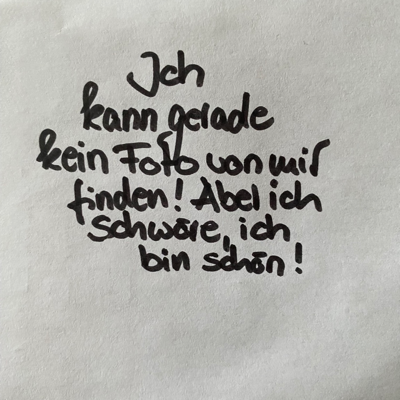 Ich
kann gerade
kein Foto von mir
finden! Aber ich
schwöre, ich
bin schön!